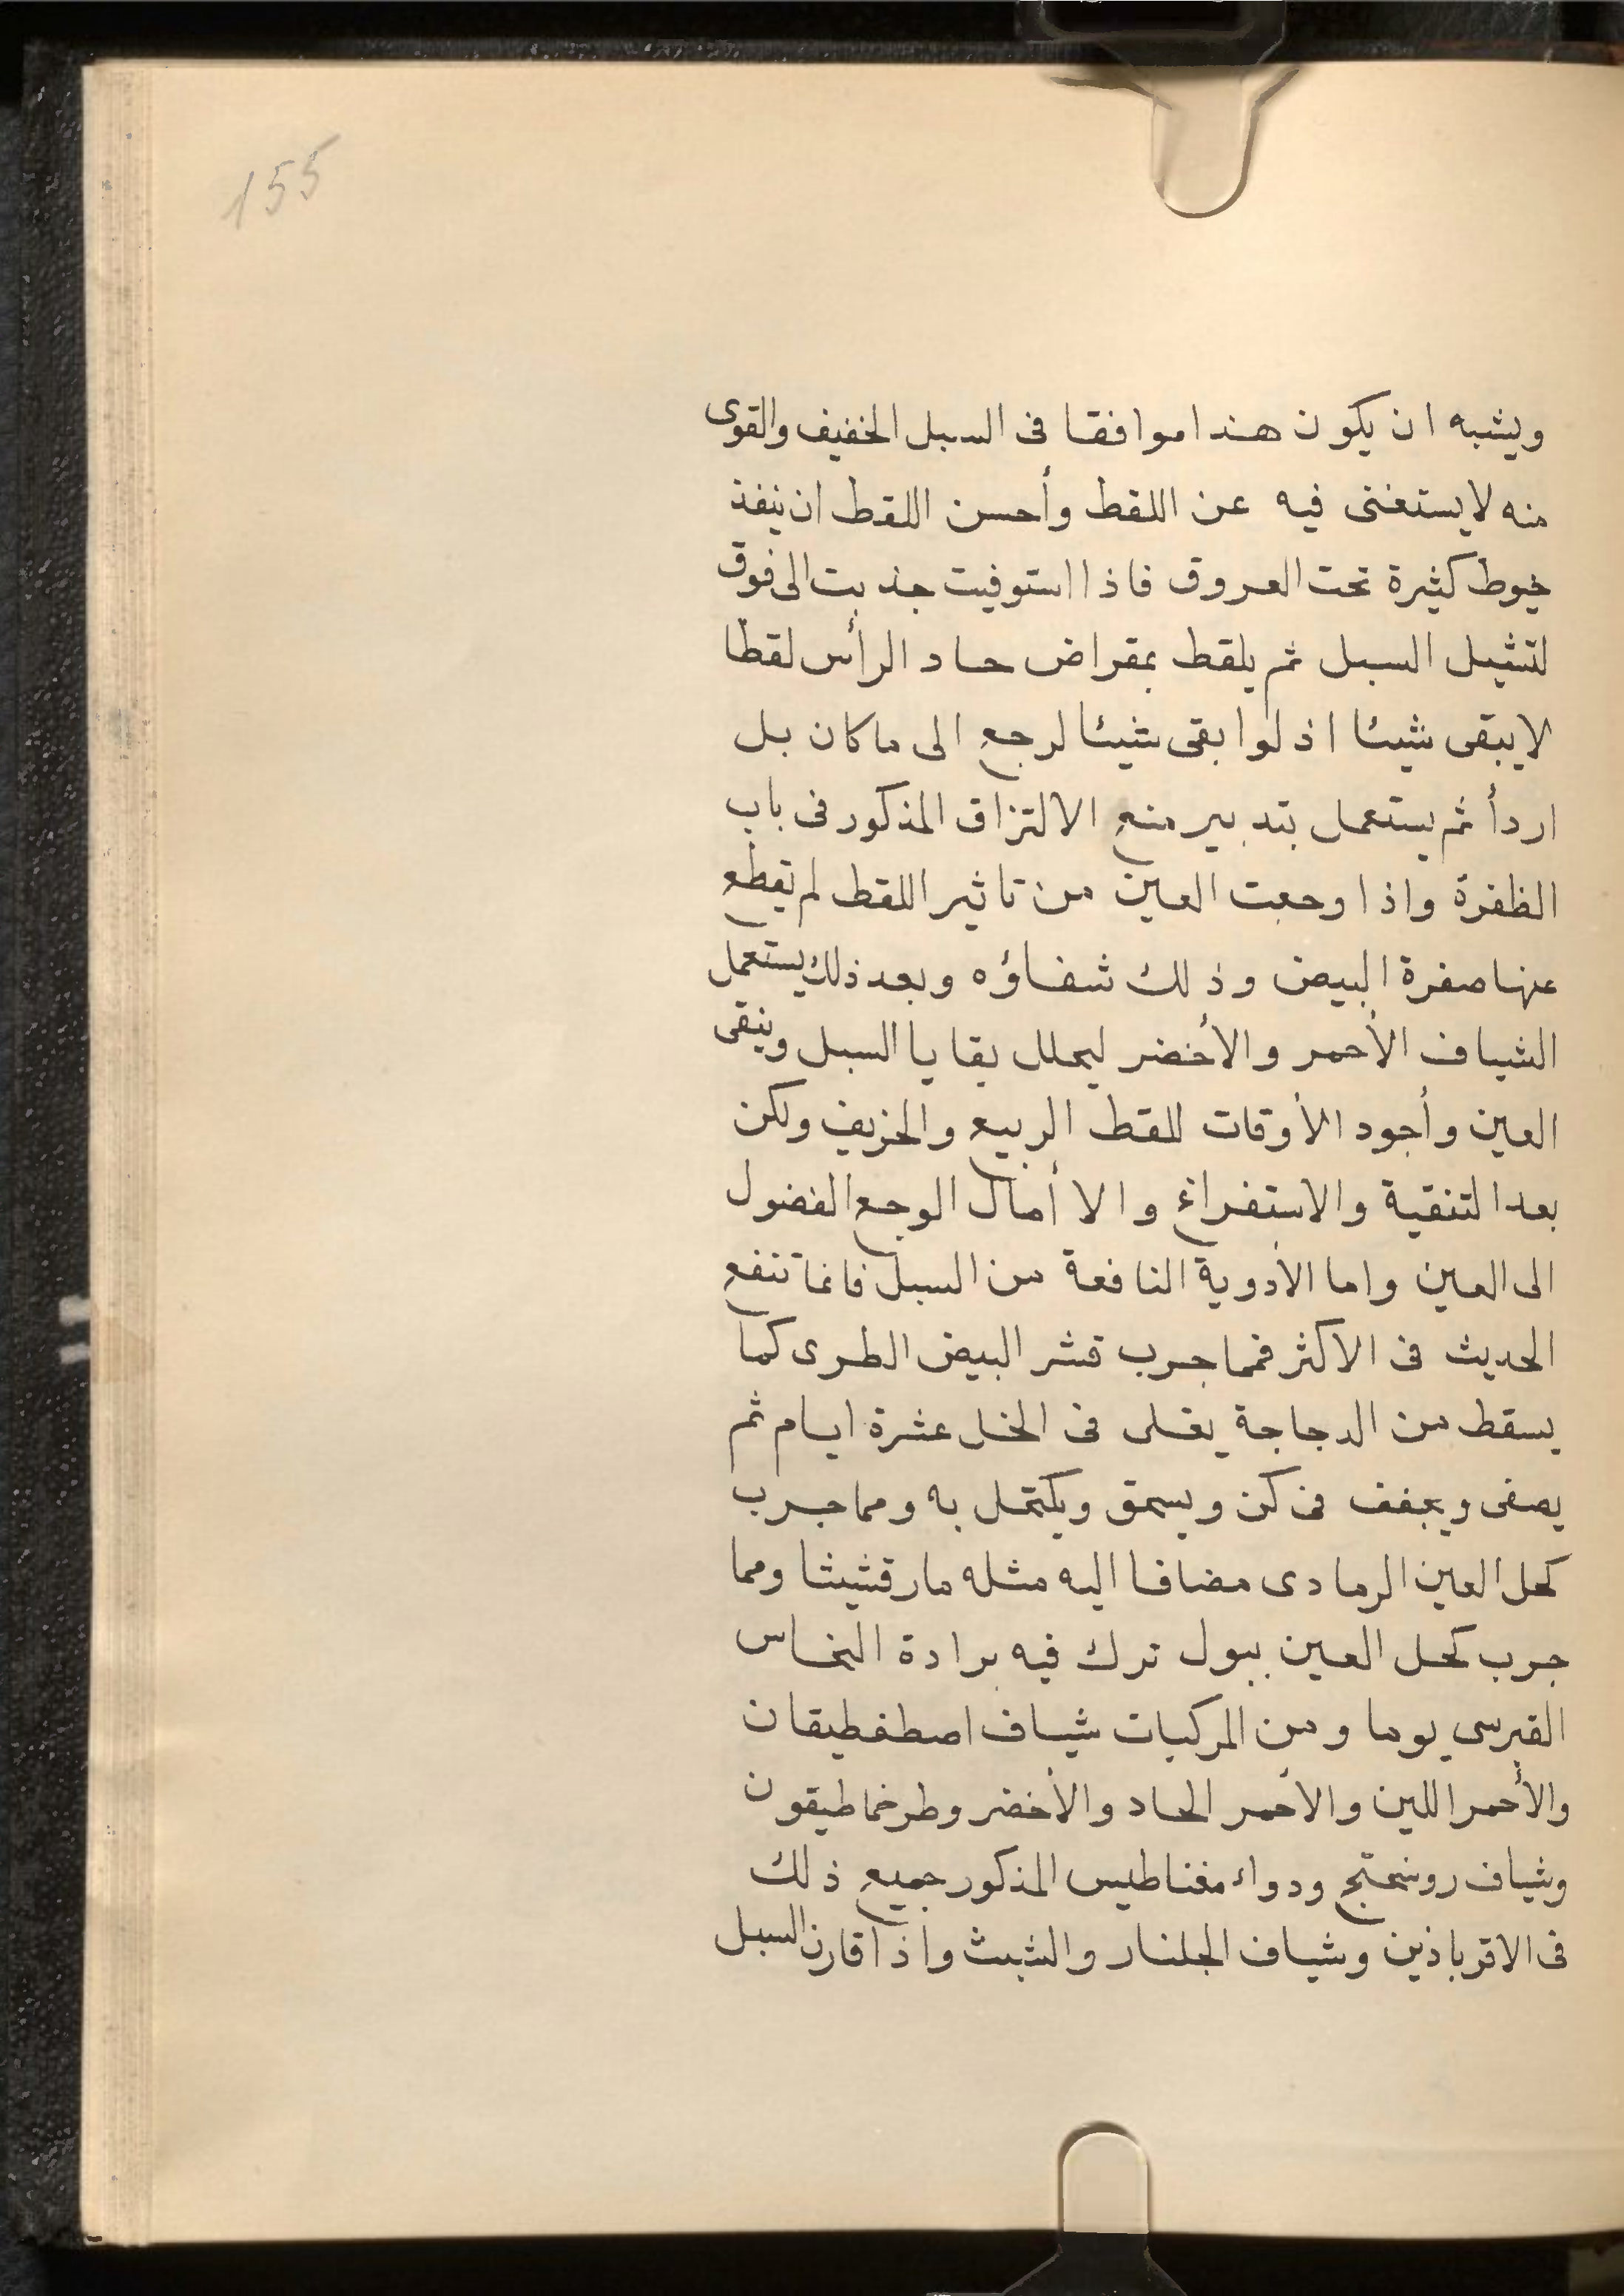 155
ويشبه ان يكون هذا موافقا فى السبل الخفيف والقوى
منه لا يستغنى فيه عن اللقط وأحسن اللقط ان ينفذ
خيوط كثيرة تحت العروق فاذا استوفيت جذبت الى فوق
لتشيل السبل ثم يلقط بمقراض حاد الرأس لقطا
لا يبقى شيئا اذ لوا بقى شيئا لرجع الى ما كان بل
اردأ ثم يستعمل بتدبير منع الالتزاق المذكور فى باب
الظفرة واذا وجعت العين من تاثير اللقط لم تقطع
عنها صفرة البيض وذلك شفاؤه وبعد ذلك يستعمل
الشياف الأحمر والأخضر ليحلل بقايا السبل وينقى
العين وأجود الأوقات للقط الربيع والخريف ولكن
بعد التنقية والاستفراغ والا أمال الوجع الفضول
الى العين واما الأدوية النافعة من السبل فانما تنفع
الحديث فى الاكثر فمما جرب قشر البيض الطرى كما
يسقط من الدجاجة يغلى فى الخل عشرة ايام ثم
يصفى ويجفف فى كن ويسحق ويكتحل به ومما جرب
كحل العين الرمادى مضافا اليه مثله مارقشيثا ومما
جرب كحل العين ببول ترك فيه برادة النحاس
القبرسى يوما ومن المركبات شياف اصطفطيقان
والأحمر اللين والأحمر الحاد والأخضر وطرخماطيقون
وشياف روسختج ودواء مغناطيس المذكور جميع ذلك
فى الاقرباذين وشياف الجلنار والشبث واذا قارن السبل